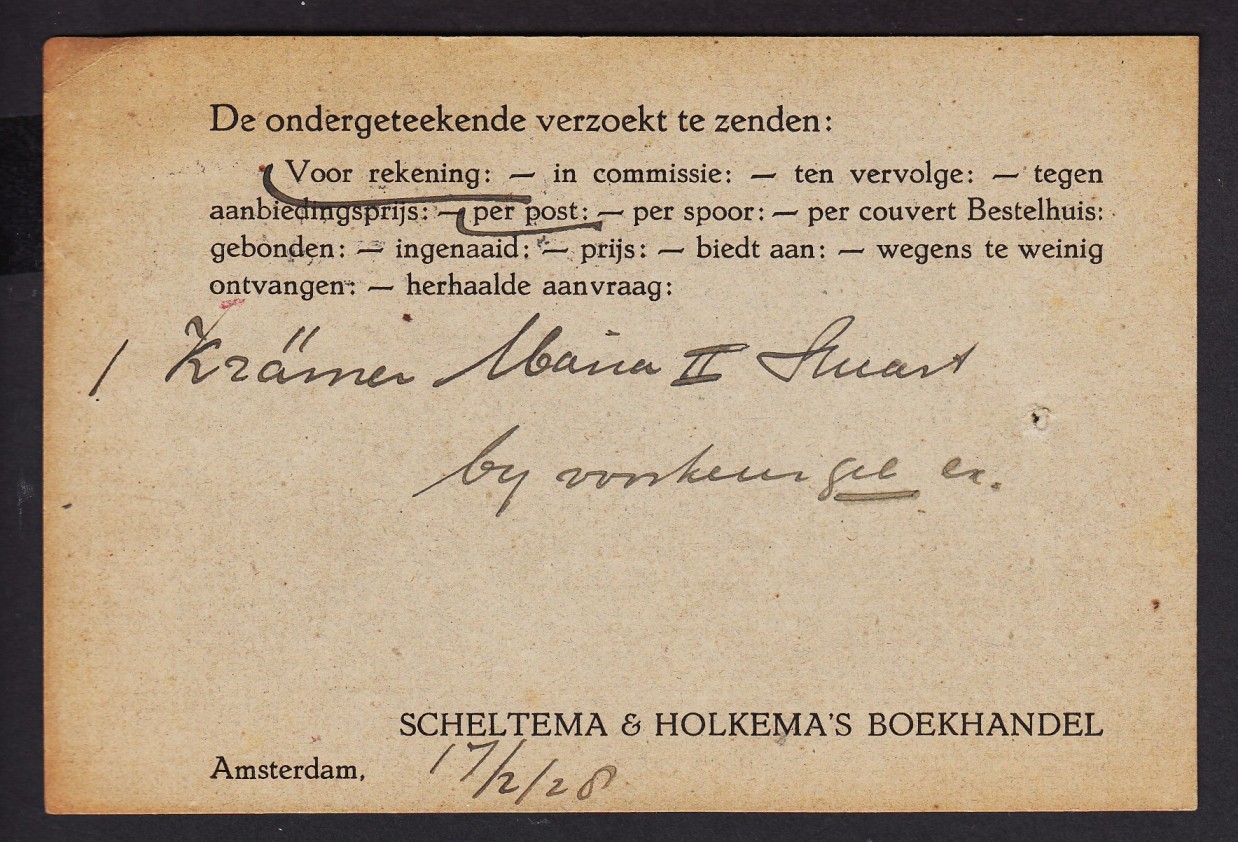 De ondergeteekende verzoekt te zenden:
Voor rekening: — in commissie: — ten vervolge: — tegen
aanbiedingsprijs: — per post: — per spoor: — per couvert Bestelhuis:
gebonden: — ingenaaid: — prijs: — biedt aan: — wegens te weinig
ontvangen: — herhaalde aanvraag:
1 Krämer Maria II Stuart
by voorkeur geb ex.
SCHELTEMA & HOLKEMA'S BOEKHANDEL
Amsterdam, 17/2/28